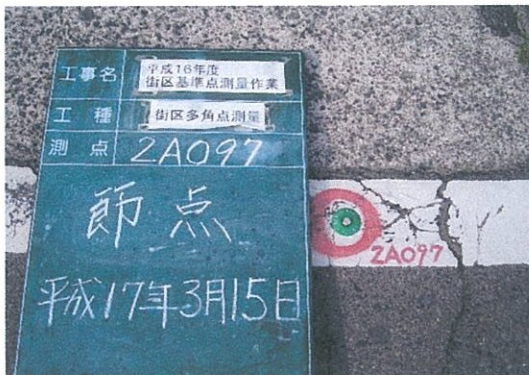 工事名
平成16年度
街区基準点測量作業
工種
街区多角点測量
測点
2A097
節点
平成17年3月15日
2A097